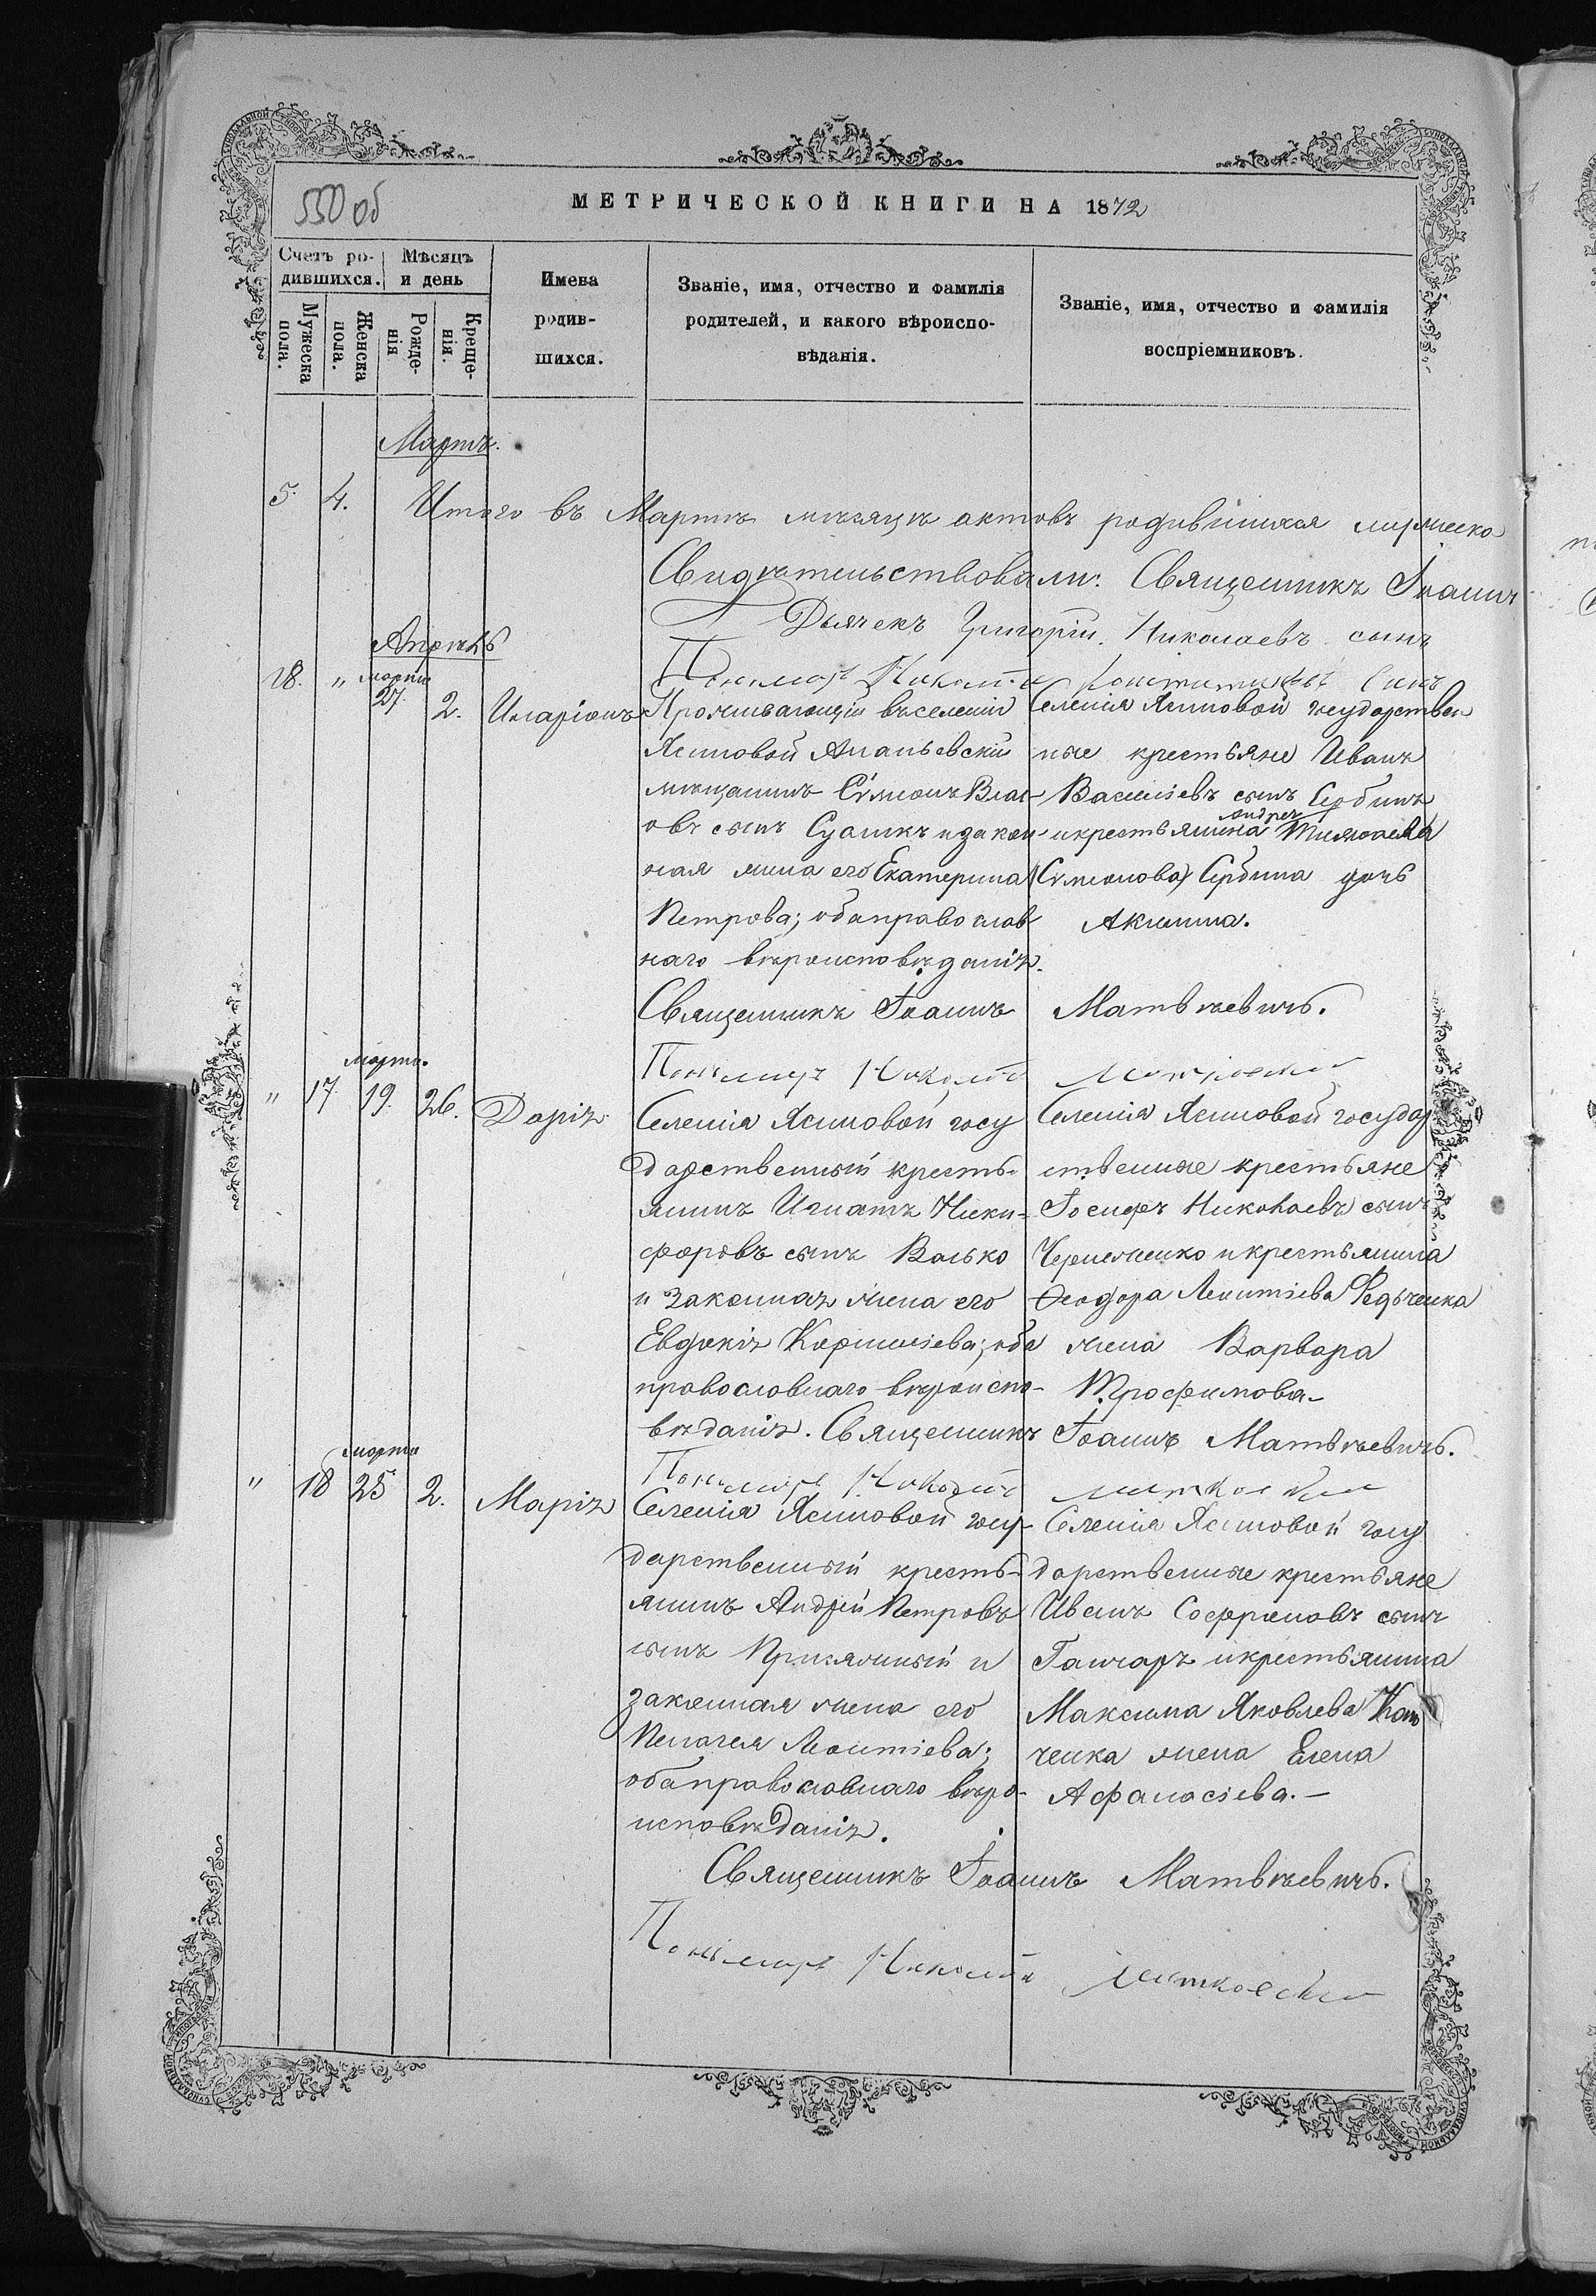 550 об
МЕТРИЧЕСКОЙ КНИГИ НА 1872
Счетъ ро-
дившихся.
Мѣсяцъ
и день
Мужеска
пола.
Женска
пола.
Рожде-
нія
Креще-
нія.
Имена
родив-
шихся.
Званіе, имя, отчество и фамилія
родителей, и какого вѣроиспо-
вѣданія.
Званіе, имя, отчество и фамилія
воспріемниковъ.
Мартъ.
5. 4. Итого въ Мартѣ мѣсяцѣ актовъ родившихся мужеска
Свидѣтельствовали: Священникъ Іоаннъ
Дьячекъ Григорій Николаевъ сынъ
Пономарь Николай Константиновъ сынъ
Апрѣль
18. " марта 27 2. Иларіонъ
Проживающій въ селеніи
Ясиновой Ананьевскій
мѣщанинъ Сѵмеонъ Влас-
овъ сынъ и закон-
ная жена его Екатерина
Петрова; оба православ-
наго вѣроисповѣданія.
Селенія Ясиновой государствен
ные крестьяне Иванъ
Василіевъ сынъ Сербинъ
и крестьянина Андрея Тимофеева
(Сѵмеонова) Сербина дочь
Акилина.
Священникъ Іоаннъ Матвѣевичъ.
Пономарь Николай
" 17. марта. 19. 26. Дарія
Селенія Ясиновой госу
дарственный кресть-
янинъ Игнатъ Ники-
форовъ сынъ Волько
и законная жена его
Евдокія Корниліева; оба
православнаго вѣроиспо-
вѣданія. Священникъ Іоаннъ Матвѣевичъ.
Селенія Ясиновой государ
ственные крестьяне
Іосифъ Николаевъ сынъ
и крестьянина
Ѳеодора Леонтіева Федченка
жена Варвара
Трофимова.
Пономарь Николай
" 18 марта 25 2. Марія
Селенія Ясиновой госу-
дарственный кресть-
янинъ Андрей Петровъ
сынъ и
законная жена его
Пелагея Леонтіева;
оба православнаго вѣро-
исповѣданія.
Селенія Ясиновой госу
дарственные крестьяне
Иванъ Софроновъ сынъ
Ганчаръ и крестьянина
Максима Яковлева
ченка жена Елена
Афанасіева.
Священникъ Іоаннъ Матвѣевичъ.
Пономарь Николай